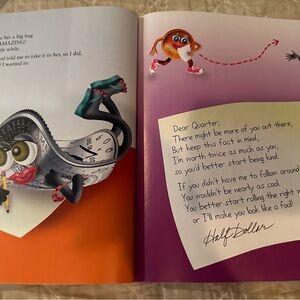 her a big hug
AMAZING!
tle while.
nd told me to take it to her, so I did.
I wanted to.
Dear Quarter,
There might be more of you out there,
But keep this fact in mind,
I'm worth twice as much as you,
so you'd better start being kind.
If you didn't have me to follow around
You wouldn't be nearly as cool.
You better start rolling the right
or I'll make you look like a fool!
Half Dollar